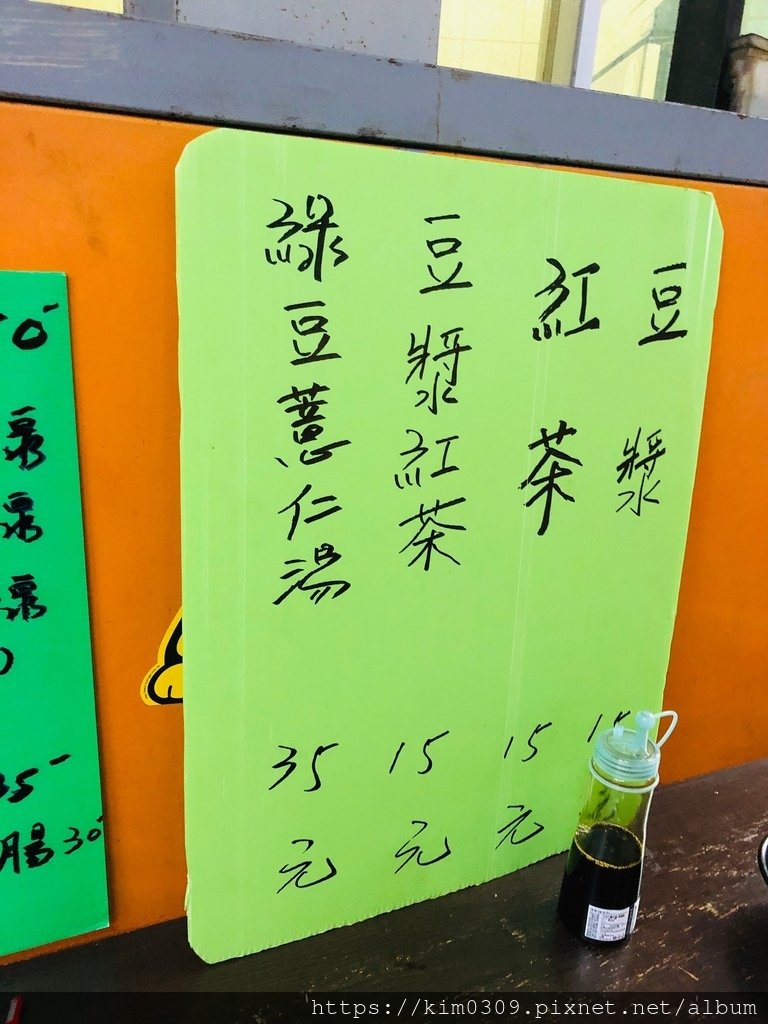 豆漿 15
紅茶 15元
豆漿紅茶 15元
綠豆薏仁湯 35元
35
腸30
https://kim0309.pixnet.net/album